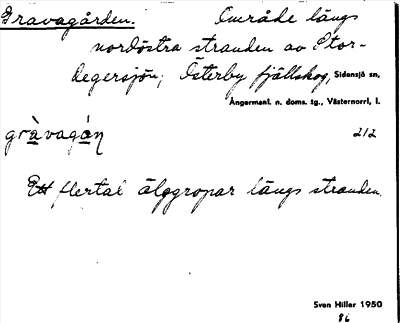 Gravagården. Område längs
nordöstra stranden av Stor-
degersjön; Österby fjällskog, Sidensjö sn,
Ångermanl. n. doms. tg., Västernorrl. l.
gràvagán 212
Ett flertal älggropar längs stranden.
Sven Hiller 1950
86